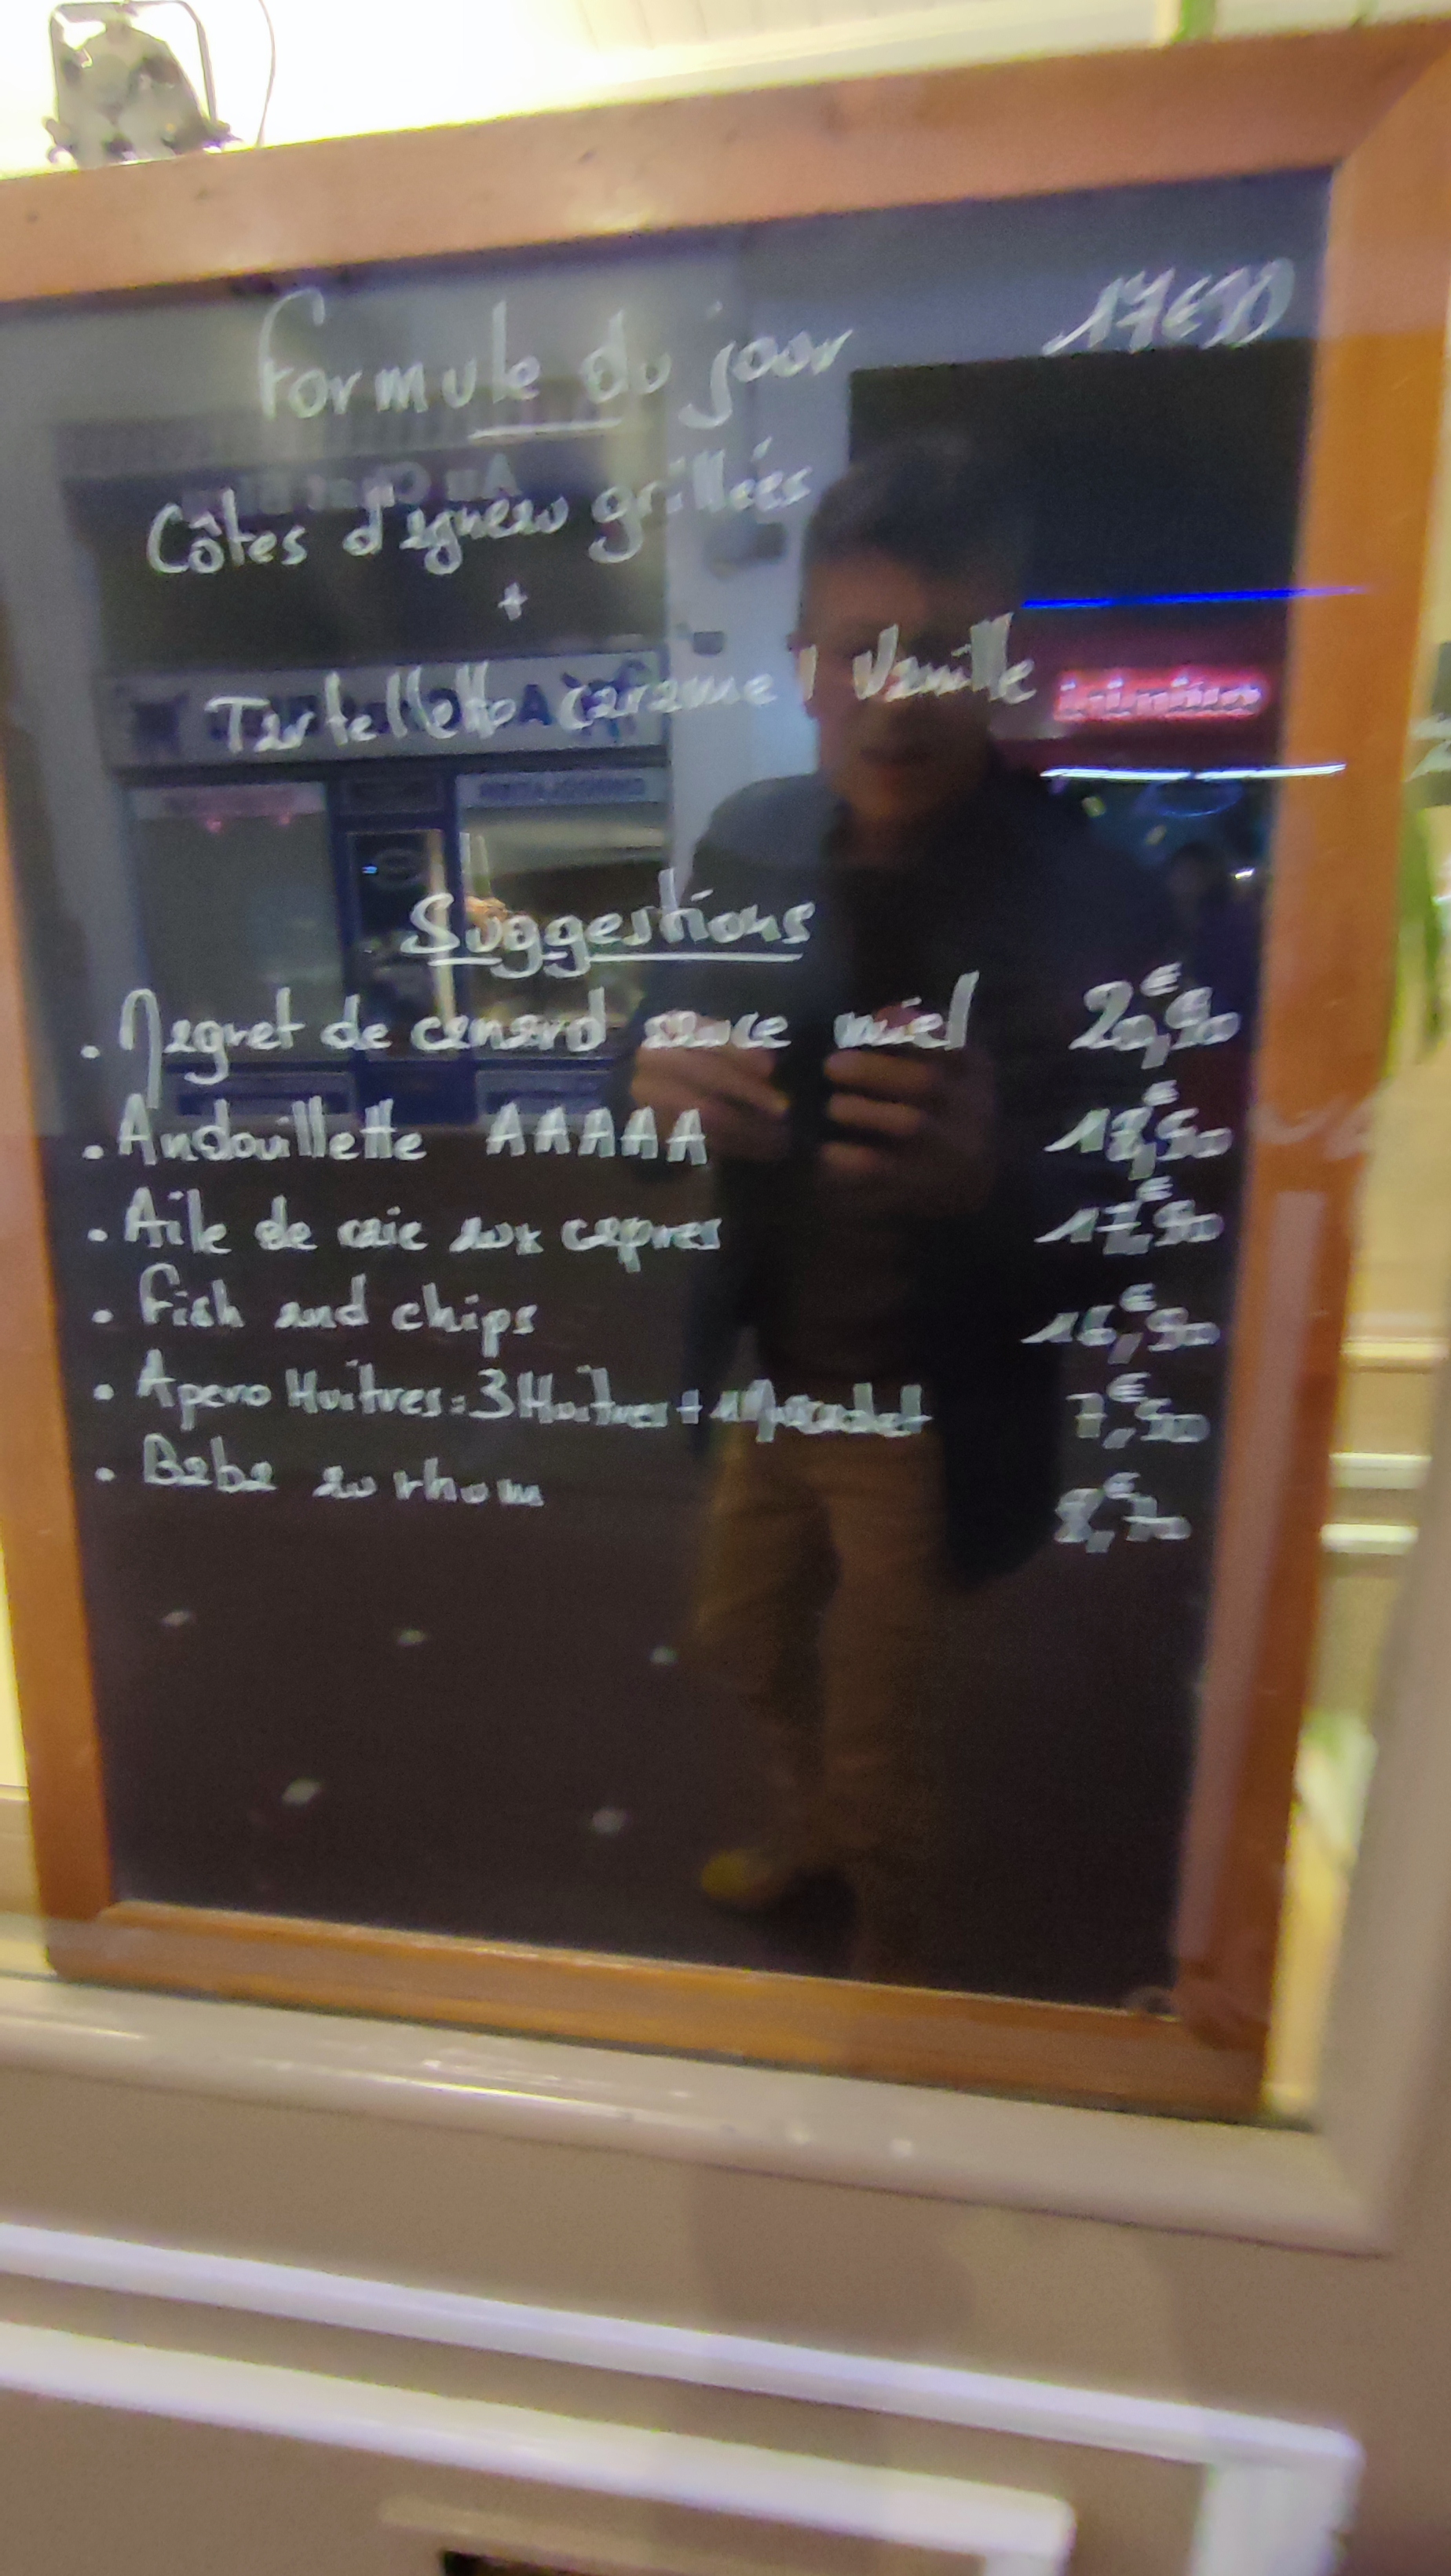 Formule du jour 17€90
Côtes d'agneau grillées
+
Tartellette caramel Vanille
Suggestions
. Magret de canard sauce miel 20,€90
. Andouillette AAAAA 18,€50
. Aile de raie aux capres 17,€90
. Fish and chips 16,€90
. Apero Huitres: 3 Huitres + 1 Muscadet 7,€50
. Baba au rhum 8,€70